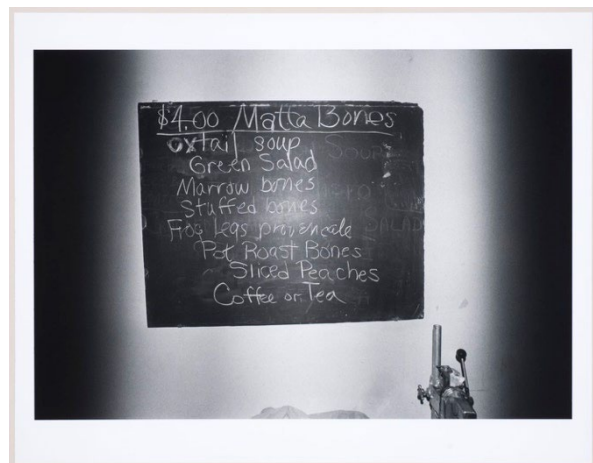 $4.00 Matta Bones
oxtail soup
Green Salad
Marrow bones
Stuffed bones
Frog Legs provencale
Pot Roast Bones
Sliced Peaches
Coffee or Tea